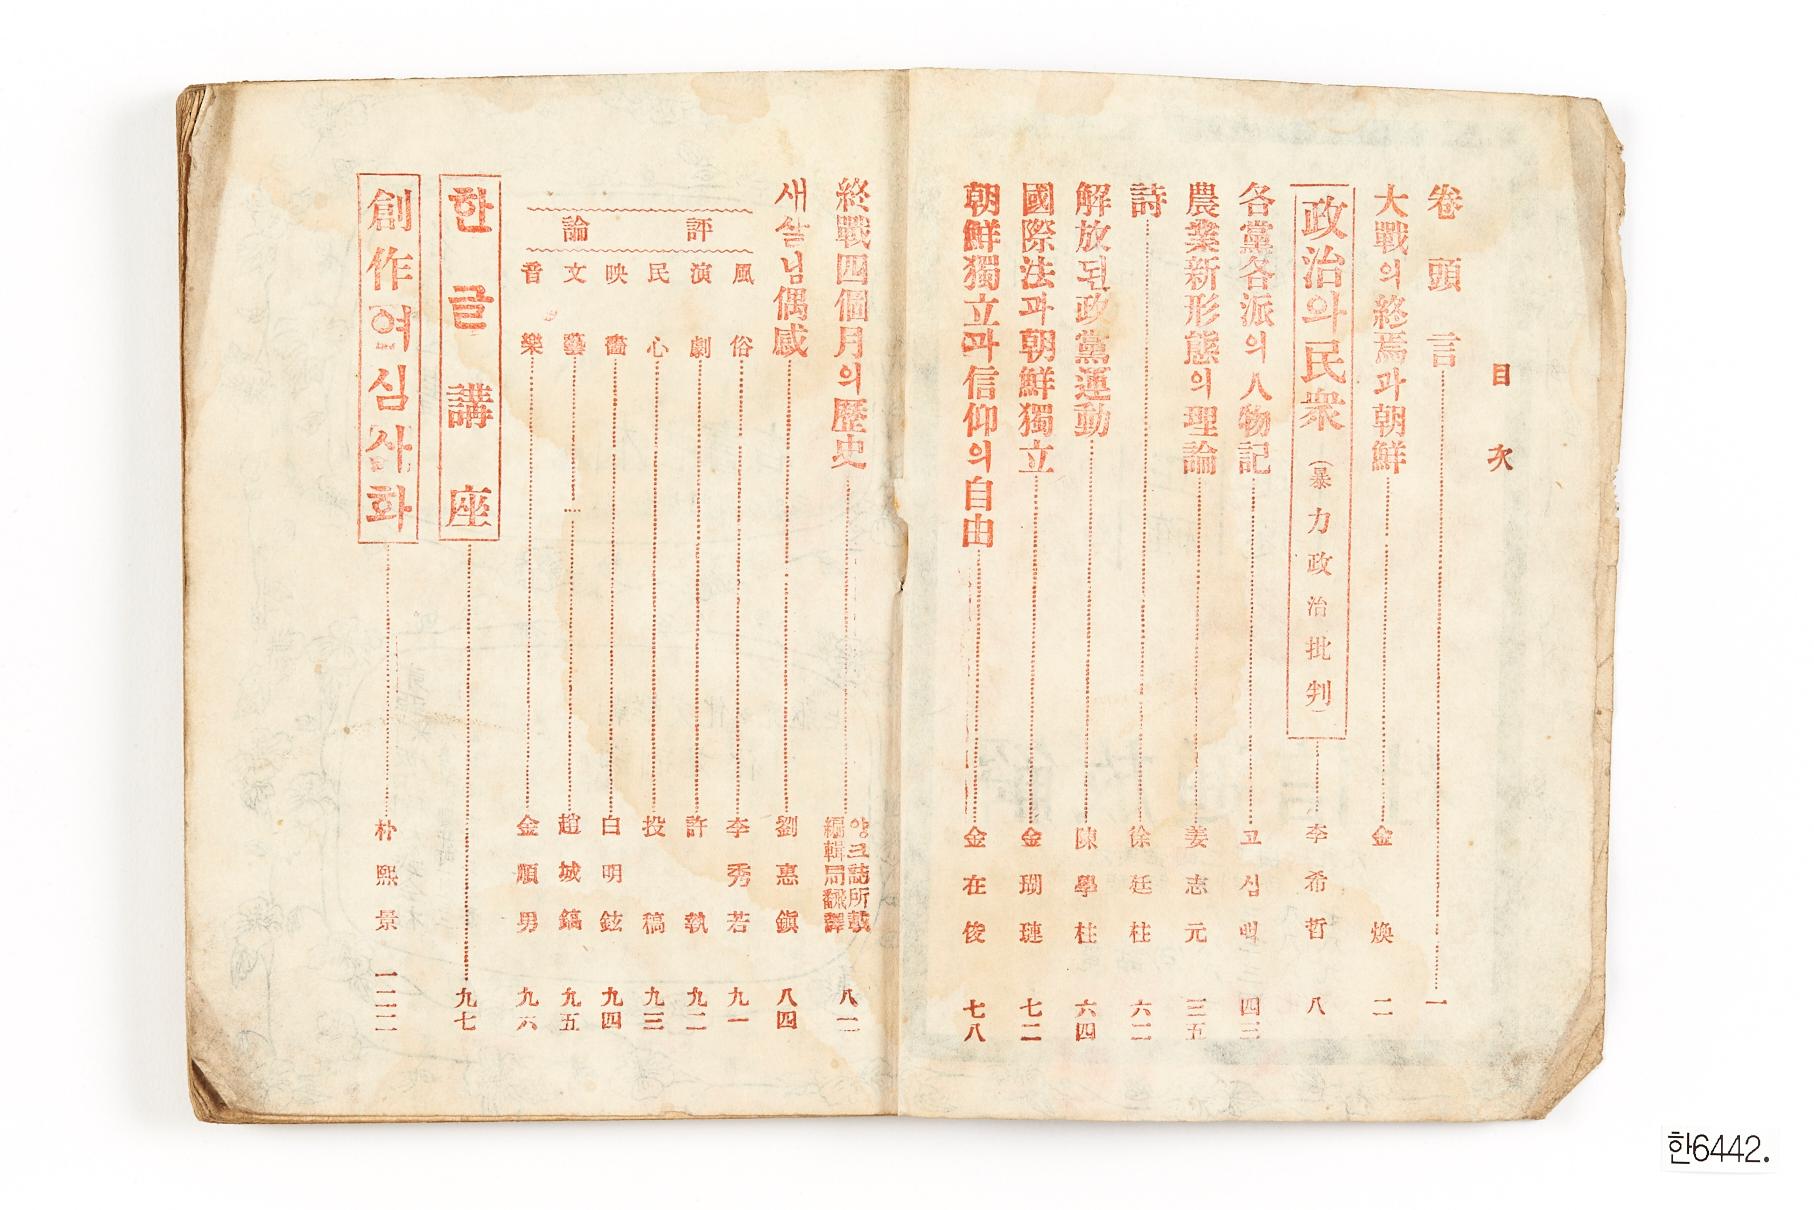 目次
卷頭言 一
大戰의終焉과朝鮮 金煥 二
政治와民衆(暴力政治批判) 李希哲 八
各黨各派의人物記 고심백 四三
農業新形態의理論 姜志元 三五
詩 徐廷柱 六二
解放된政黨運動 陳學柱 六四
國際法과朝鮮獨立 金瑚璉 七二
朝鮮獨立과信仰의自由 金在俊 七八
終戰四個月의歷史 양크誌所載 編輯局飜譯 八一
새살님偶感 劉惠鎭 八四
評論
風俗 李秀若 九一
演劇 許執 九二
民心 投稿 九三
映畵 白明鉉 九四
文藝 趙城鎬 九五
音樂 金順男 九六
한글講座 九七
創作연심사화 朴熙景 一二二
한6442.